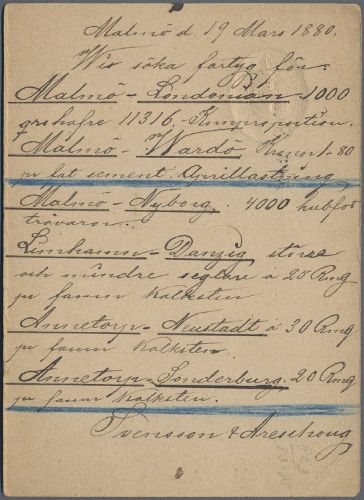 Malmö d. 19 Mars 1880.
Wir söka fartyg för:
Malmö - London 1000
qrs hafre 11316.
Malmö - Wardö 1-80
pr fat cement Aprillastning
Malmö - Nyborg. 4000 kubfot
trävaror.
Limhamn - Danzig större
och mindre seglare à 25 Rmg
pr famn kalksten
Annetorp - Neustadt à 30 Rmg
pr famn kalksten.
Annetorp - Sonderburg. 20 Rmg
pr famn kalksten.
Svensson & Areschoug